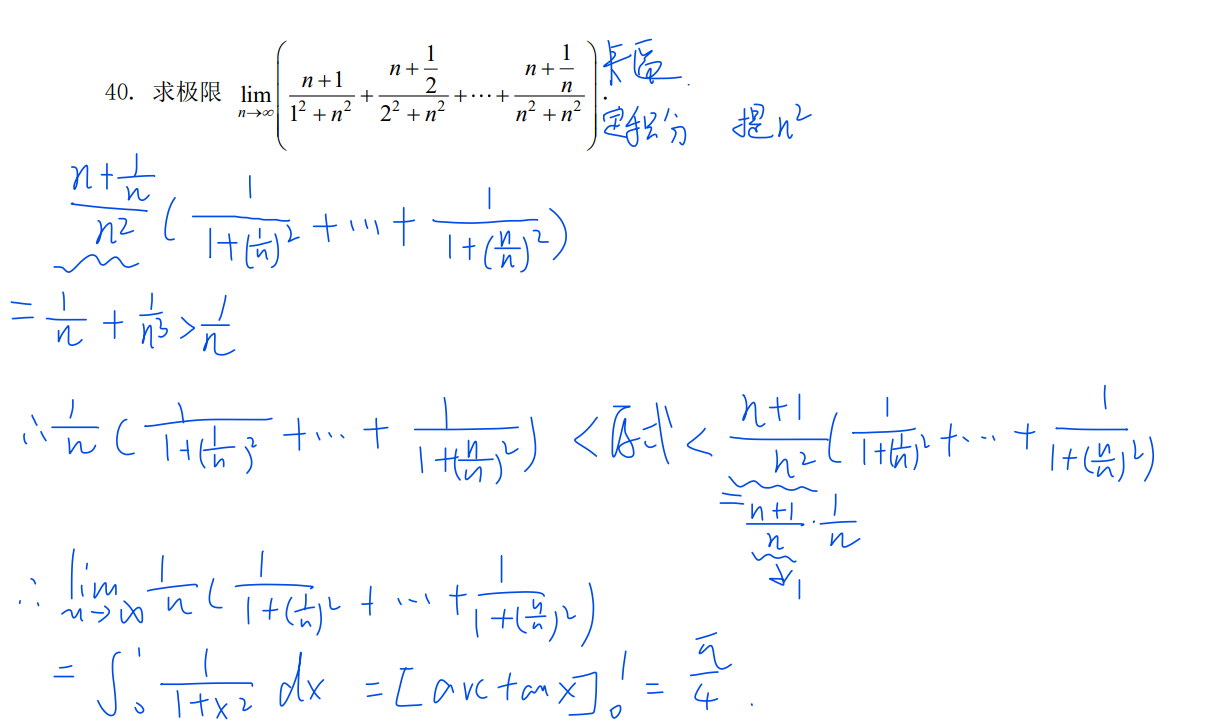 40. 求极限 lim n→∞ ( (n+1)/(1²+n²) + (n+1/2)/(2²+n²) + ⋯ + (n+1/n)/(n²+n²) ).
定积分 提n²
(n+1/n)/n² ( 1/(1+(1/n)²) + ⋯ + 1/(1+(n/n)²) )
= 1/n + 1/n³ > 1/n
∴ 1/n ( 1/(1+(1/n)²) + ⋯ + 1/(1+(n/n)²) ) < 原式 < (n+1)/n² ( 1/(1+(1/n)²) + ⋯ + 1/(1+(n/n)²) )
= (n+1)/n · 1/n
↓1
∴ lim n→∞ 1/n ( 1/(1+(1/n)²) + ⋯ + 1/(1+(n/n)²) )
= ∫₀¹ 1/(1+x²) dx = [arctanx]₀¹ = π/4.